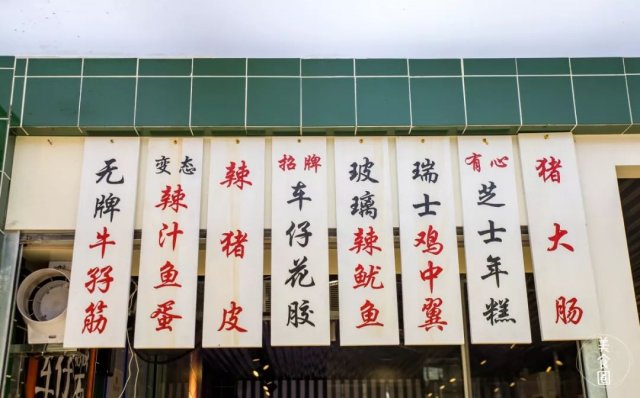 无牌牛孖筋
变态辣汁鱼蛋
辣猪皮
招牌车仔花胶
玻璃辣鱿鱼
瑞士鸡中翼
有心芝士年糕
猪大肠
车仔
美食圈